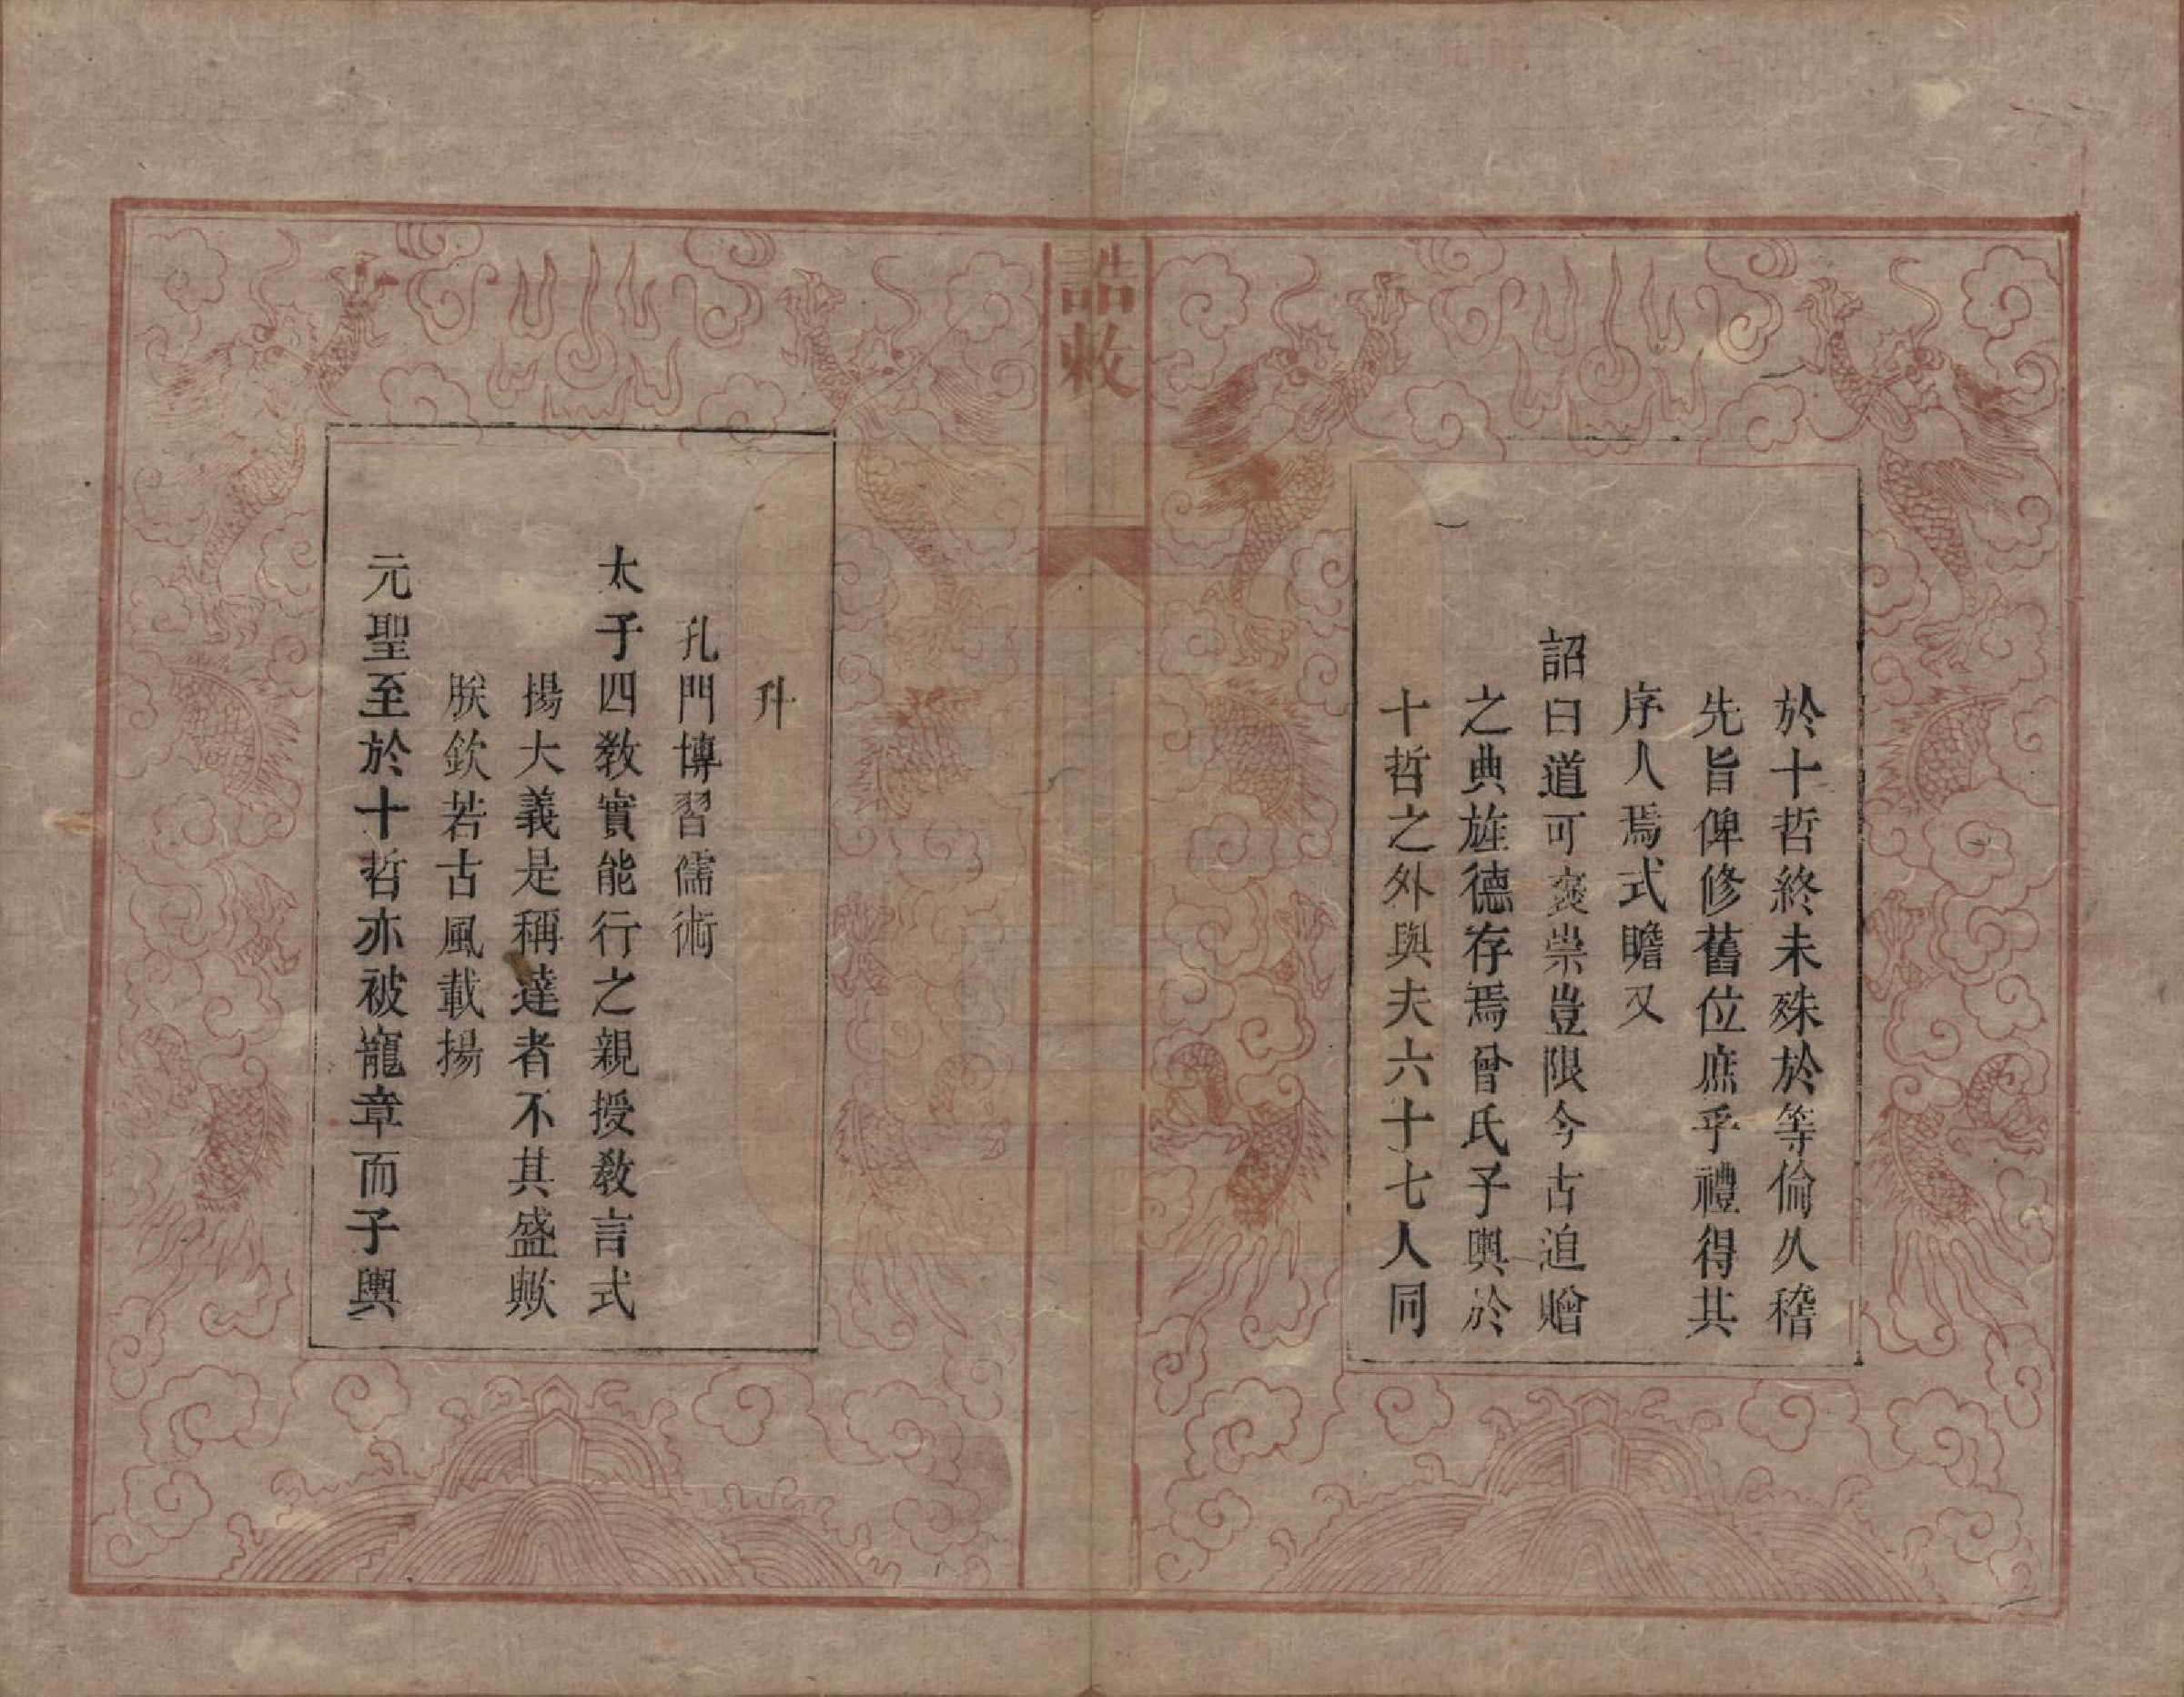 於十哲終未殊於等倫久稽
先旨俾修舊位庶乎禮得其
序人焉式瞻又
詔曰道可褒崇豈限今古追贈
之典旌德存焉曾氏子輿於
十哲之外與夫六十七人同
誥敕
升
孔門博習儒術
太子四敎實能行之親授敎言式
揚大義是稱達者不其盛歟
朕欽若古風載揚
元聖至於十哲亦被寵章而子輿